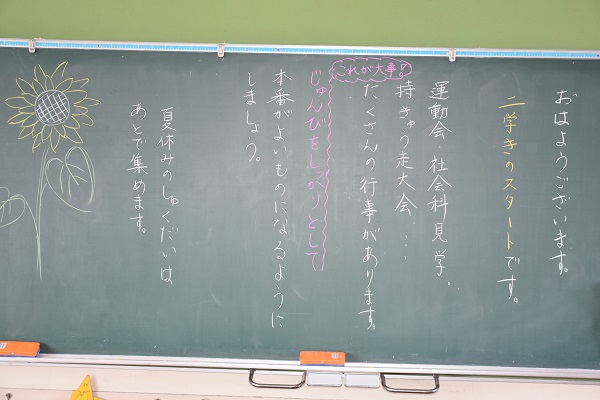 おはようございます。
二学きのスタートです。
運動会、社会科見学、
持きゅう走大会…
たくさんの行事があります。
これが大事!
じゅんびをしっかりとして
本番がよいものになるように
しましょう。
夏休みのしゅくだいは
あとで集めます。